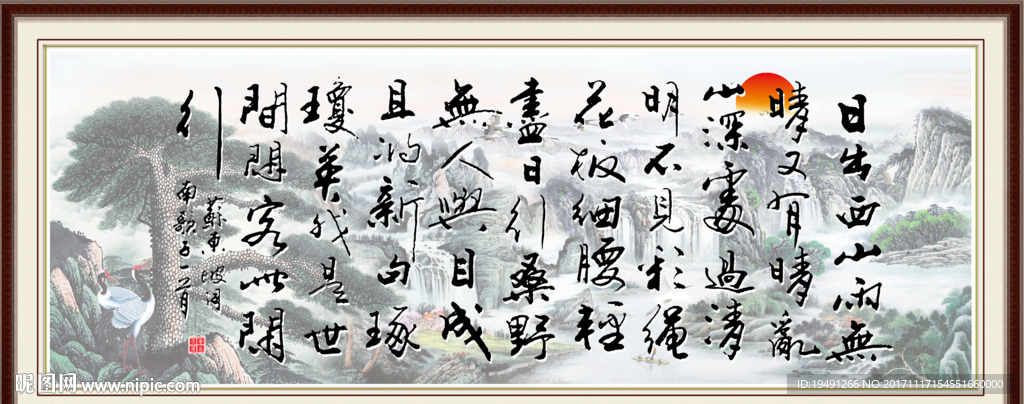 日出西山雨無
晴又有晴亂
山深處過清
明不見彩繩
花板細腰輕
盡日行桑野
無人與目成
且將新句琢
瓊英我是世
間閑客此閑
行
蘇東坡詞
南歌子一首
昵图网 www.nipic.com
ID:19491266 NO:20171117154551660000